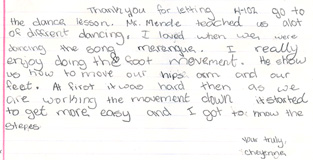 Thank you for letting 4-102 go to
the dance lesson. Mr. Mendle teached us alot
of different dancing, I loved when we, were
dancing the song merengue. I really
enjoy doing the foot movement. He show
us how to move our hips arm and our
feet. At first it was hard then as we
are working the movement down it started
to get more easy and I got to know the
stepes
your truly,
cheyenne